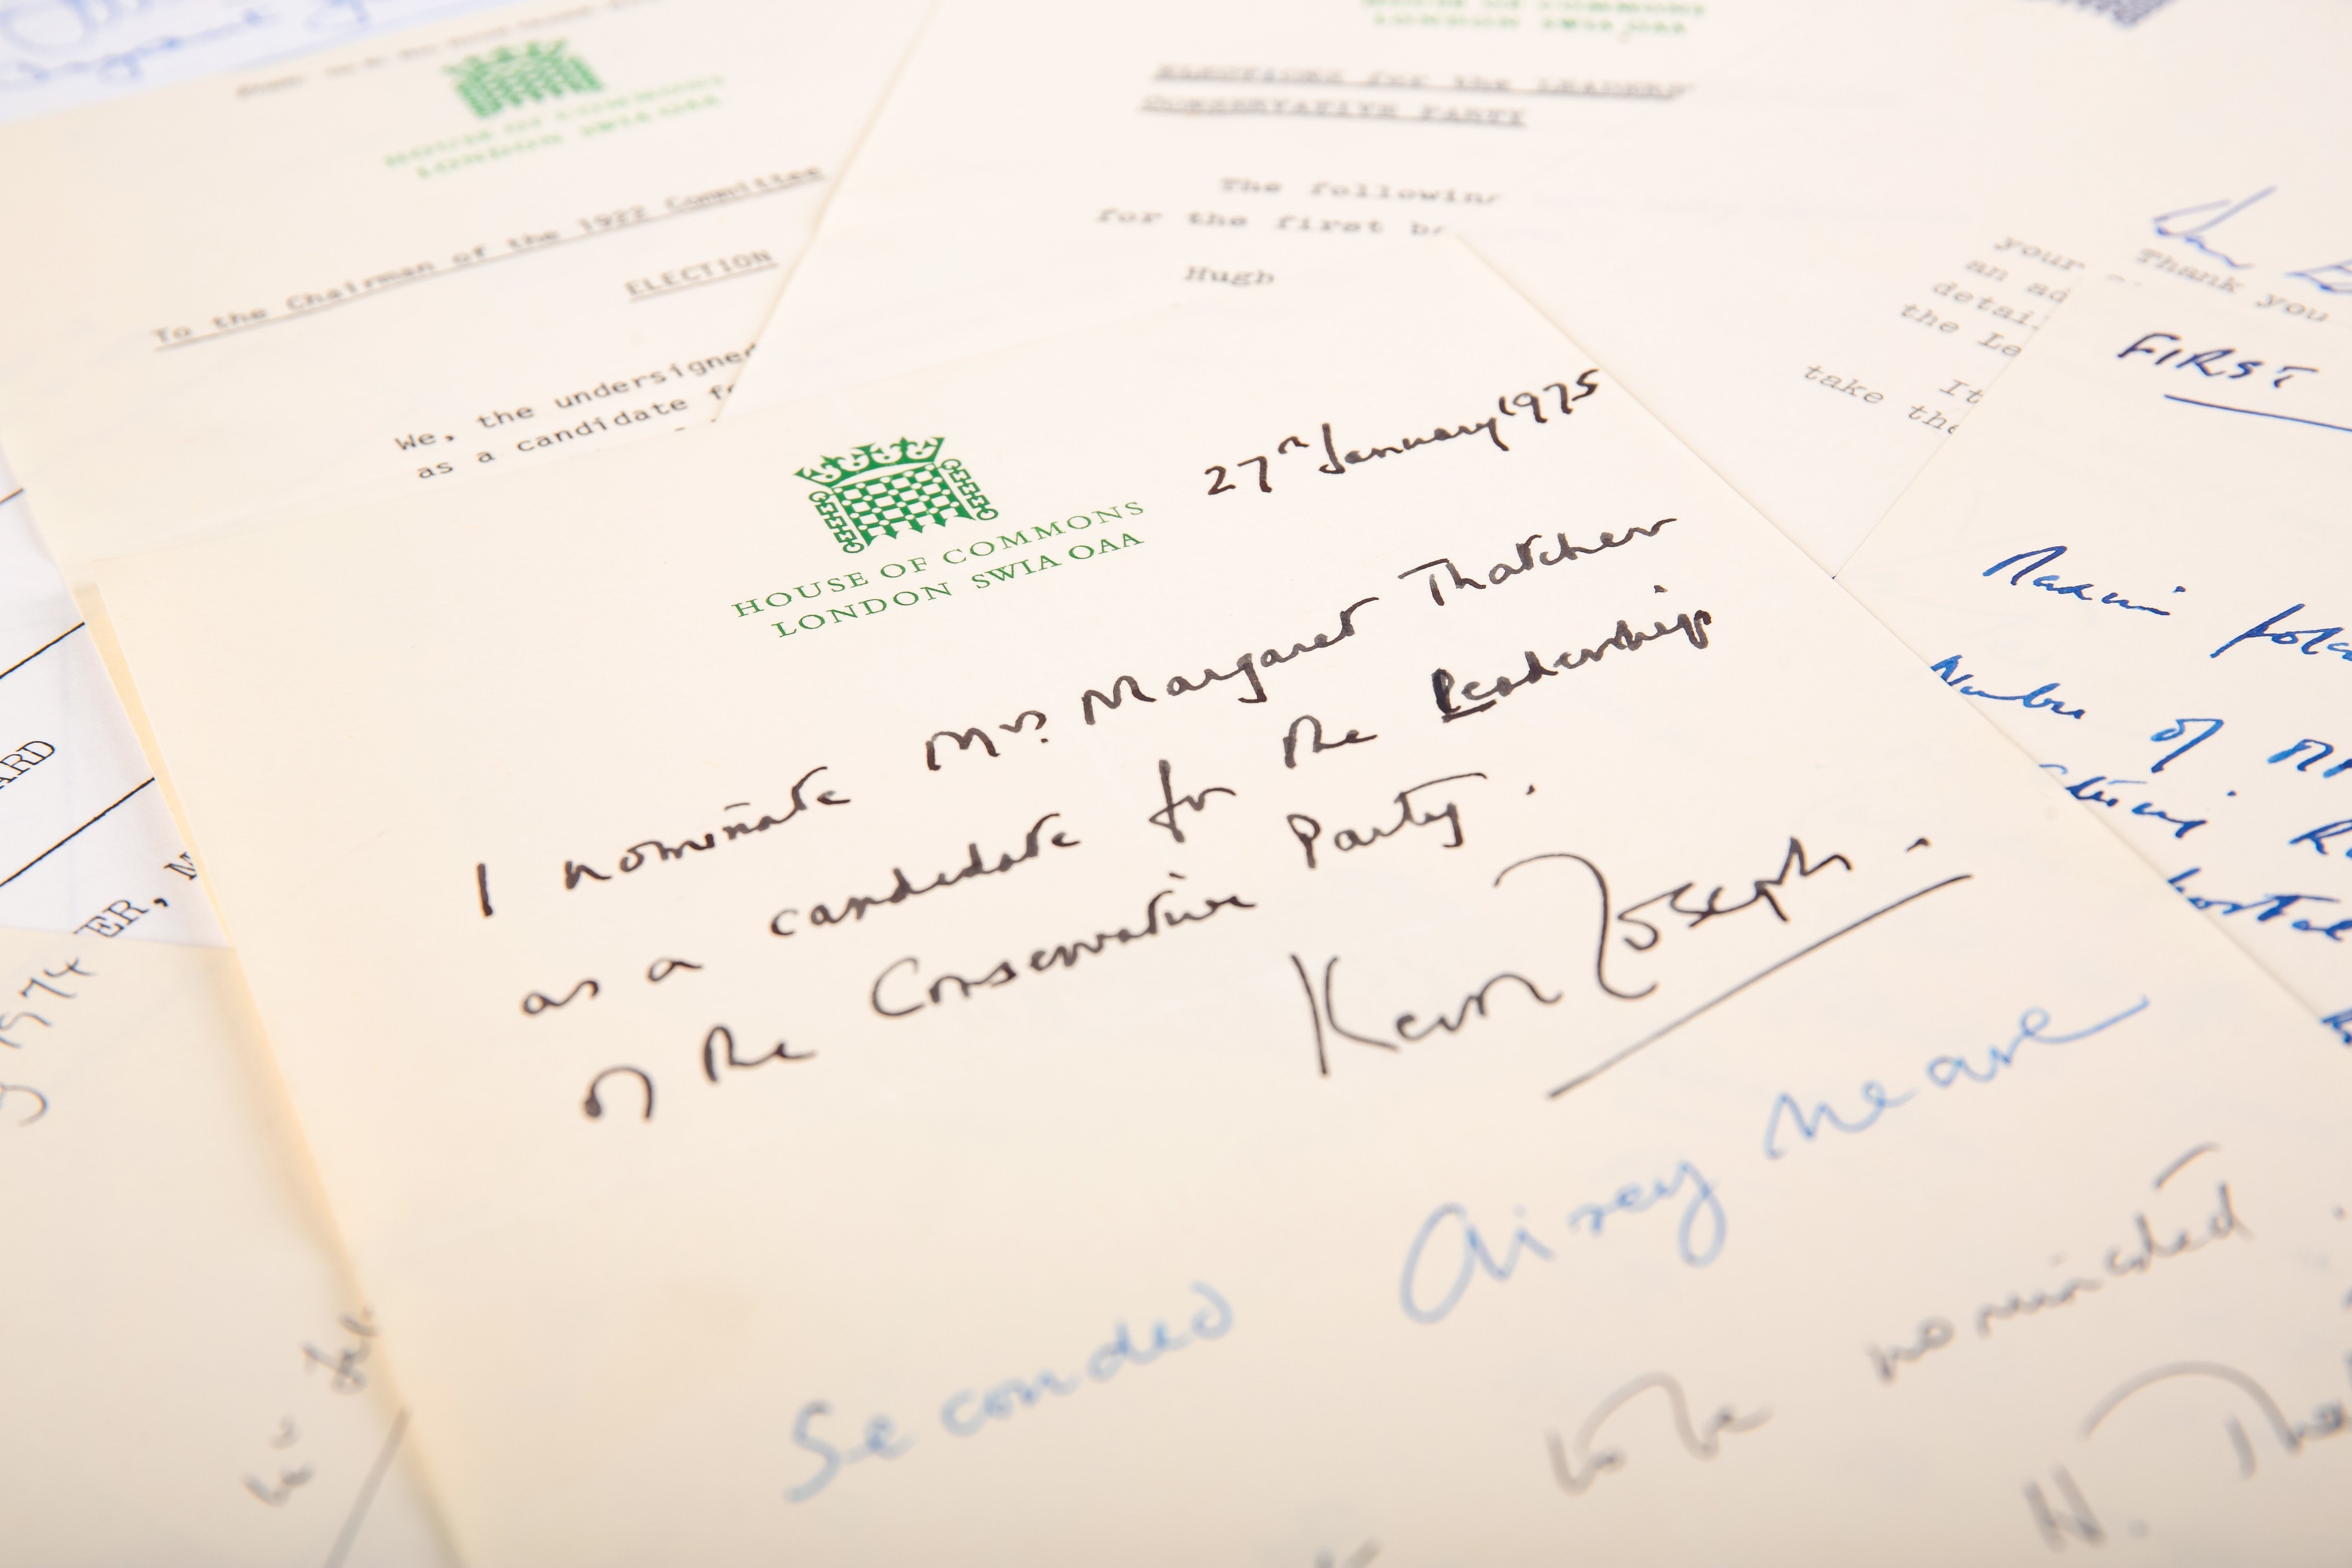 HOUSE OF COMMONS
LONDON SW1A 0AA
To the Chairman of the 1922 Committee
ELECTION
We, the undersigned
as a candidate fo
HOUSE OF COMMONS
LONDON SW1A 0AA
ELECTIONS for the LEADERS
CONSERVATIVE PARTY
The following
for the first b
Hugh
your
an ad
detai
the Le
It
take the
Thank you
FIRST
Number of
HOUSE OF COMMONS
LONDON SW1A 0AA
27th January 1975
I nominate Mrs. Margaret Thatcher
as a candidate for the Leadership
of the Conservative Party.
Keith Joseph.
Seconded Airey Neave
to be nominated.
M. Tha
ARD
ER, M
1974